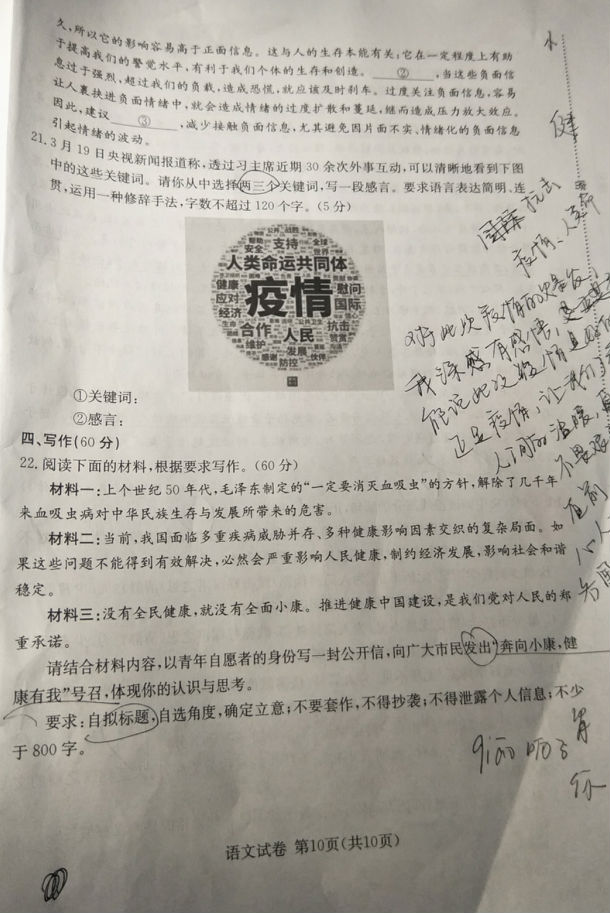 久,所以它的影响容易高于正面信息。这与人的生存本能有关;它在一定程度上有助
于提高我们的警觉水平,有利于我们个体的生存和创造。②,当这些负面信
息过于强烈,超过我们的负载,造成恐慌,就应该及时刹车。过度关注负面信息,容易
让人裹挟进负面情绪中,就会造成情绪的过度扩散和蔓延,继而造成压力放大效应。
因此,建议③,减少接触负面信息,尤其避免因片面不实、情绪化的负面信息
引起情绪的波动。
21.3月19日央视新闻报道称,透过习主席近期30余次外事互动,可以清晰地看到下图
中的这些关键词。请你从中选择两三个关键词,写一段感言。要求语言表达简明、连
贯,运用一种修辞手法,字数不超过120个字。(5分)
公共 战胜
帮助 支持 全球
安全 世界
人类命运共同体
健康 疫情 慰问
应对 国际
经济
合作 人民 抗击
赞赏
维护 发展
感谢 防控 伙伴
①关键词:
②感言:
四、写作(60分)
22.阅读下面的材料,根据要求写作。(60分)
材料一:上个世纪50年代,毛泽东制定的“一定要消灭血吸虫”的方针,解除了几千年
来血吸虫病对中华民族生存与发展所带来的危害。
材料二:当前,我国面临多重疾病威胁并存、多种健康影响因素交织的复杂局面。如
果这些问题不能得到有效解决,必然会严重影响人民健康,制约经济发展,影响社会和谐
稳定。
材料三:没有全民健康,就没有全面小康。推进健康中国建设,是我们党对人民的郑
重承诺。
请结合材料内容,以青年自愿者的身份写一封公开信,向广大市民发出“奔向小康,健
康有我”号召,体现你的认识与思考。
要求:自拟标题,自选角度,确定立意;不要套作,不得抄袭;不得泄露个人信息;不少
于800字。
语文试卷 第10页(共10页)
疫情、人类命
对于此次疫情的爆发,
我深感有感悟,
能说此次疫情是
还是疫情,让我们
人间的温暖,
不畏艰